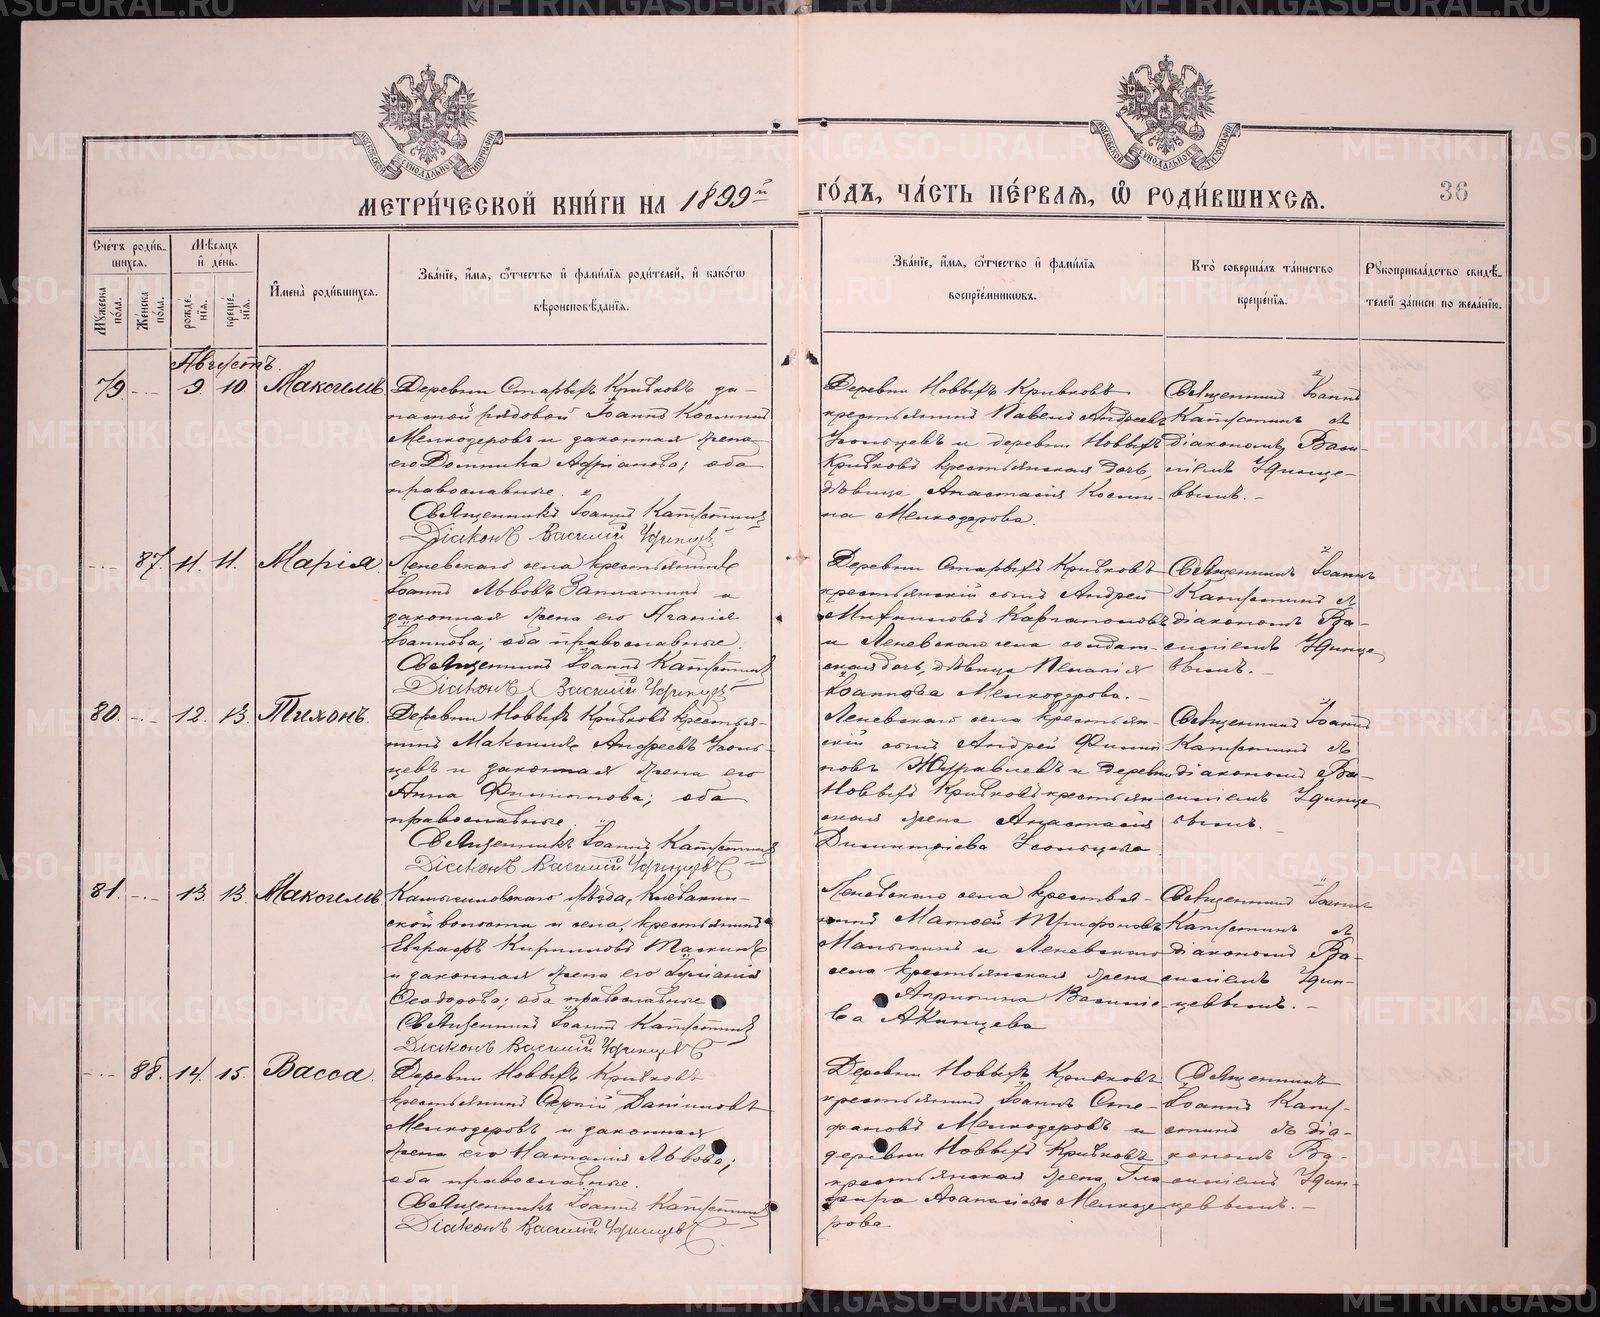 МЕТРИ́ЧЕСКОЙ КНИ́ГИ НА 1899й ГО́ДЪ, ЧА́СТЬ ПЕ́РВАЯ, Ѡ РОДИ́ВШИХСЯ.
36
Сче́тъ роди́в-
шихся.
Мꙋжеска по́ла.
Же́нска по́ла.
Мѣ́сяцъ и де́нь.
рожде́нїя.
креще́нїя.
Имена̀ роди́вшихся.
Зва́нїе, и́мя, ѻ҆́тчество и фами́лїя роди́телей, и како́гѡ
вѣроисповѣ́данїя.
Зва́нїе, и́мя, ѻ҆́тчество и фами́лїя
воспрїе́мникѡвъ.
Кто̀ соверша́лъ та́инство
креще́нїя.
Рꙋкоприкла́дство свидѣ́-
телей за́писи по жела́нїю.
Августъ.
79 -.- 9. 10. Максимъ
Деревни Старыхъ Кривковъ за-
пасной рядовой Іоаннъ Косминъ
Мелкодеровъ и законная жена
его Домника Адріанова; оба
православные.
Священникъ Іоаннъ
Діаконъ Василій Удинцевъ
Деревни Новыхъ Кривковъ
крестьянинъ Павелъ Андреевъ
Усольцевъ и деревни Новыхъ
Кривковъ крестьянская дочь,
дѣвица Анастасія Косми-
на Мелкодерова.
Священникъ Іоаннъ
съ
діакономъ Васи-
ліемъ Удинце-
вымъ. -
-.- 87. 11. 11. Марія.
Леневскаго села крестьянинъ
Іоаннъ Львовъ и
законная жена его Агапія
Іоаннова; оба православные.
Священникъ Іоаннъ
Діаконъ Василій Удинцевъ
Деревни Старыхъ Кривковъ
крестьянскій сынъ Андрей
и Леневскаго села солдат-
ская дочь, дѣвица Пелагія
Іоаннова Мелкодерова. -
Священникъ Іоаннъ
съ
діакономъ Ва-
силіемъ Удинце
вымъ. -
80. -.- 12. 13. Тихонъ.
Деревни Новыхъ Кривковъ крестья-
нинъ Максимъ Андреевъ Усоль-
цевъ и законная жена его
Анна Филиппова; оба
православные.
Священникъ Іоаннъ
Діаконъ Василій Удинцевъ
Леневскаго села крестьян-
скій сынъ Андрей Филип
повъ Журавлевъ и деревни
Новыхъ Кривковъ крестьян-
ская жена Анастасія
Димитріева Усольцева
Священникъ Іоаннъ
съ
діакономъ Ва-
силіемъ Удинце
вымъ. -
81. -.- 13. 13. Максимъ
Камышловскаго уѣзда, Клевакин-
ской волости и села, крестьянинъ
Евграфъ Кирилловъ Таскинъ
и законная жена его Іуліанія
Ѳеодорова; оба православные
Священникъ Іоаннъ
Діаконъ Василій Удинцевъ
Леневскаго села крестья-
нинъ Матѳей Трифоновъ
и Леневскаго
села крестьянская жена
Василіе
ва Акинцева
Священникъ Іоаннъ
съ
діакономъ Ва-
силіемъ Удин-
цевымъ. -
-.- 88. 14. 15. Васса.
Деревни Новыхъ Кривковъ
крестьянинъ Сергій Даніиловъ
Мелкодеровъ и законная
жена его Наталія Львова;
оба православные.
Священникъ Іоаннъ
Діаконъ Василій Удинцевъ
Деревни Новыхъ Кривковъ
крестьянинъ Іоаннъ Сте-
фановъ Мелкодеровъ и
деревни Новыхъ Кривковъ
крестьянская жена Гла
фира Аѳанасіева Мелкоде
рова
Священникъ
Іоаннъ
съ діа-
кономъ Ва-
силіемъ Удин-
цевымъ. -